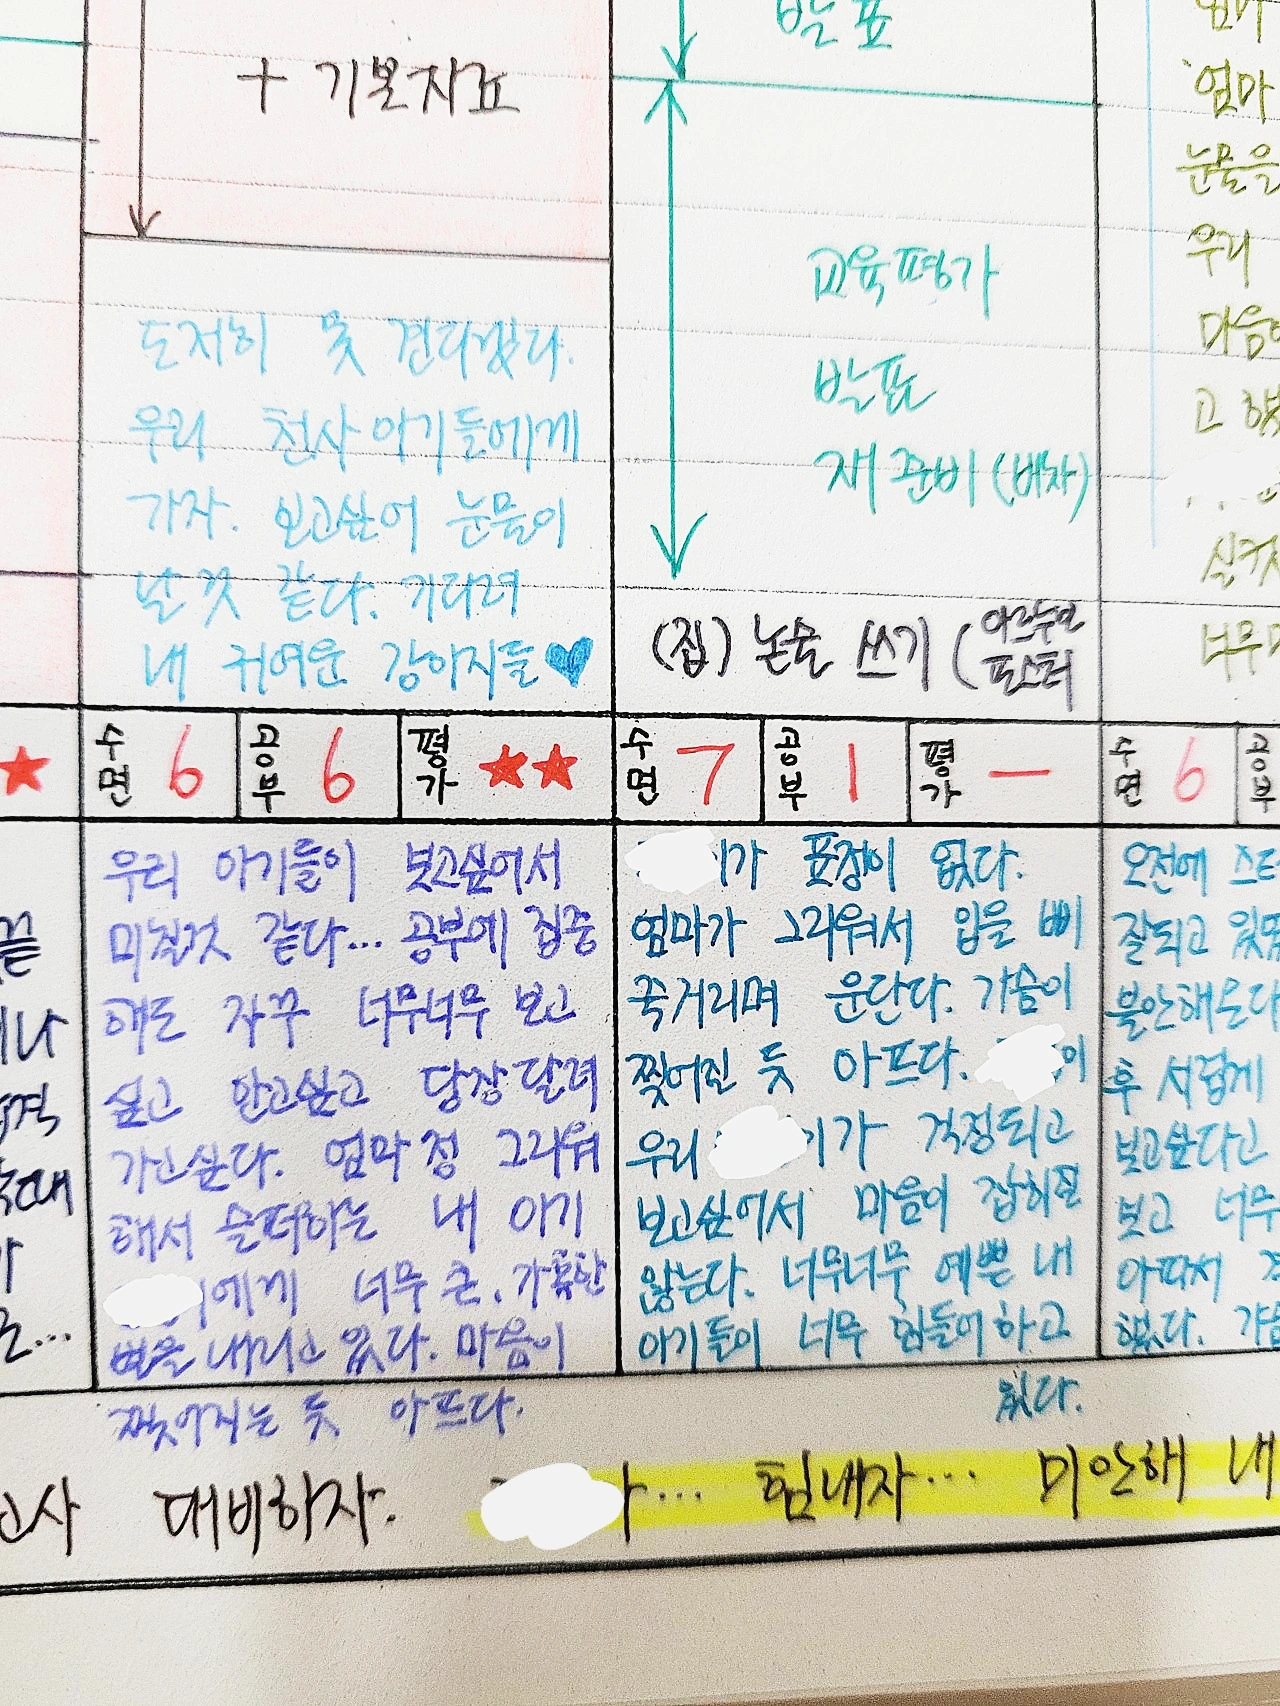 + 기본자료
도저히 못 견디겠다.
우리 천사 아기들에게
가자. 보고싶어 눈물이
날 것 같다. 기다려
내 귀여운 강아지들♥
수면 6 공부 6 평가 ★★
우리 아기들이 보고싶어서
미칠것 같다... 공부에 집중
해도 자꾸 너무너무 보고
싶고 안고싶고 당장 달려
가고싶다. 엄마 정 그리워
해서 슬퍼하는 내 아기
에게 너무 큰, 가혹한
벌을 내리고 있다. 마음이
찢어지는 듯 아프다.
발표
교육평가
발표
재 준비 (벼락)
(집) 논술 쓰기 (아르누보
포스터
수면 7 공부 1 평가 —
가 표정이 없다.
엄마가 그리워서 입을 삐
죽거리며 운단다. 가슴이
찢어진 듯 아프다. 이
우리 이가 걱정되고
보고싶어서 마음이 잡히질
않는다. 너무너무 예쁜 내
아기들이 너무 힘들어하고
있다.
엄마
눈물을
우리
고
너무
수면 6 공부
오전에
잘되고
불안해온다
후 서럽게
보고싶다고
보고 너무
아파서
했다.
★
대비하자.
... 힘내자... 미안해 내